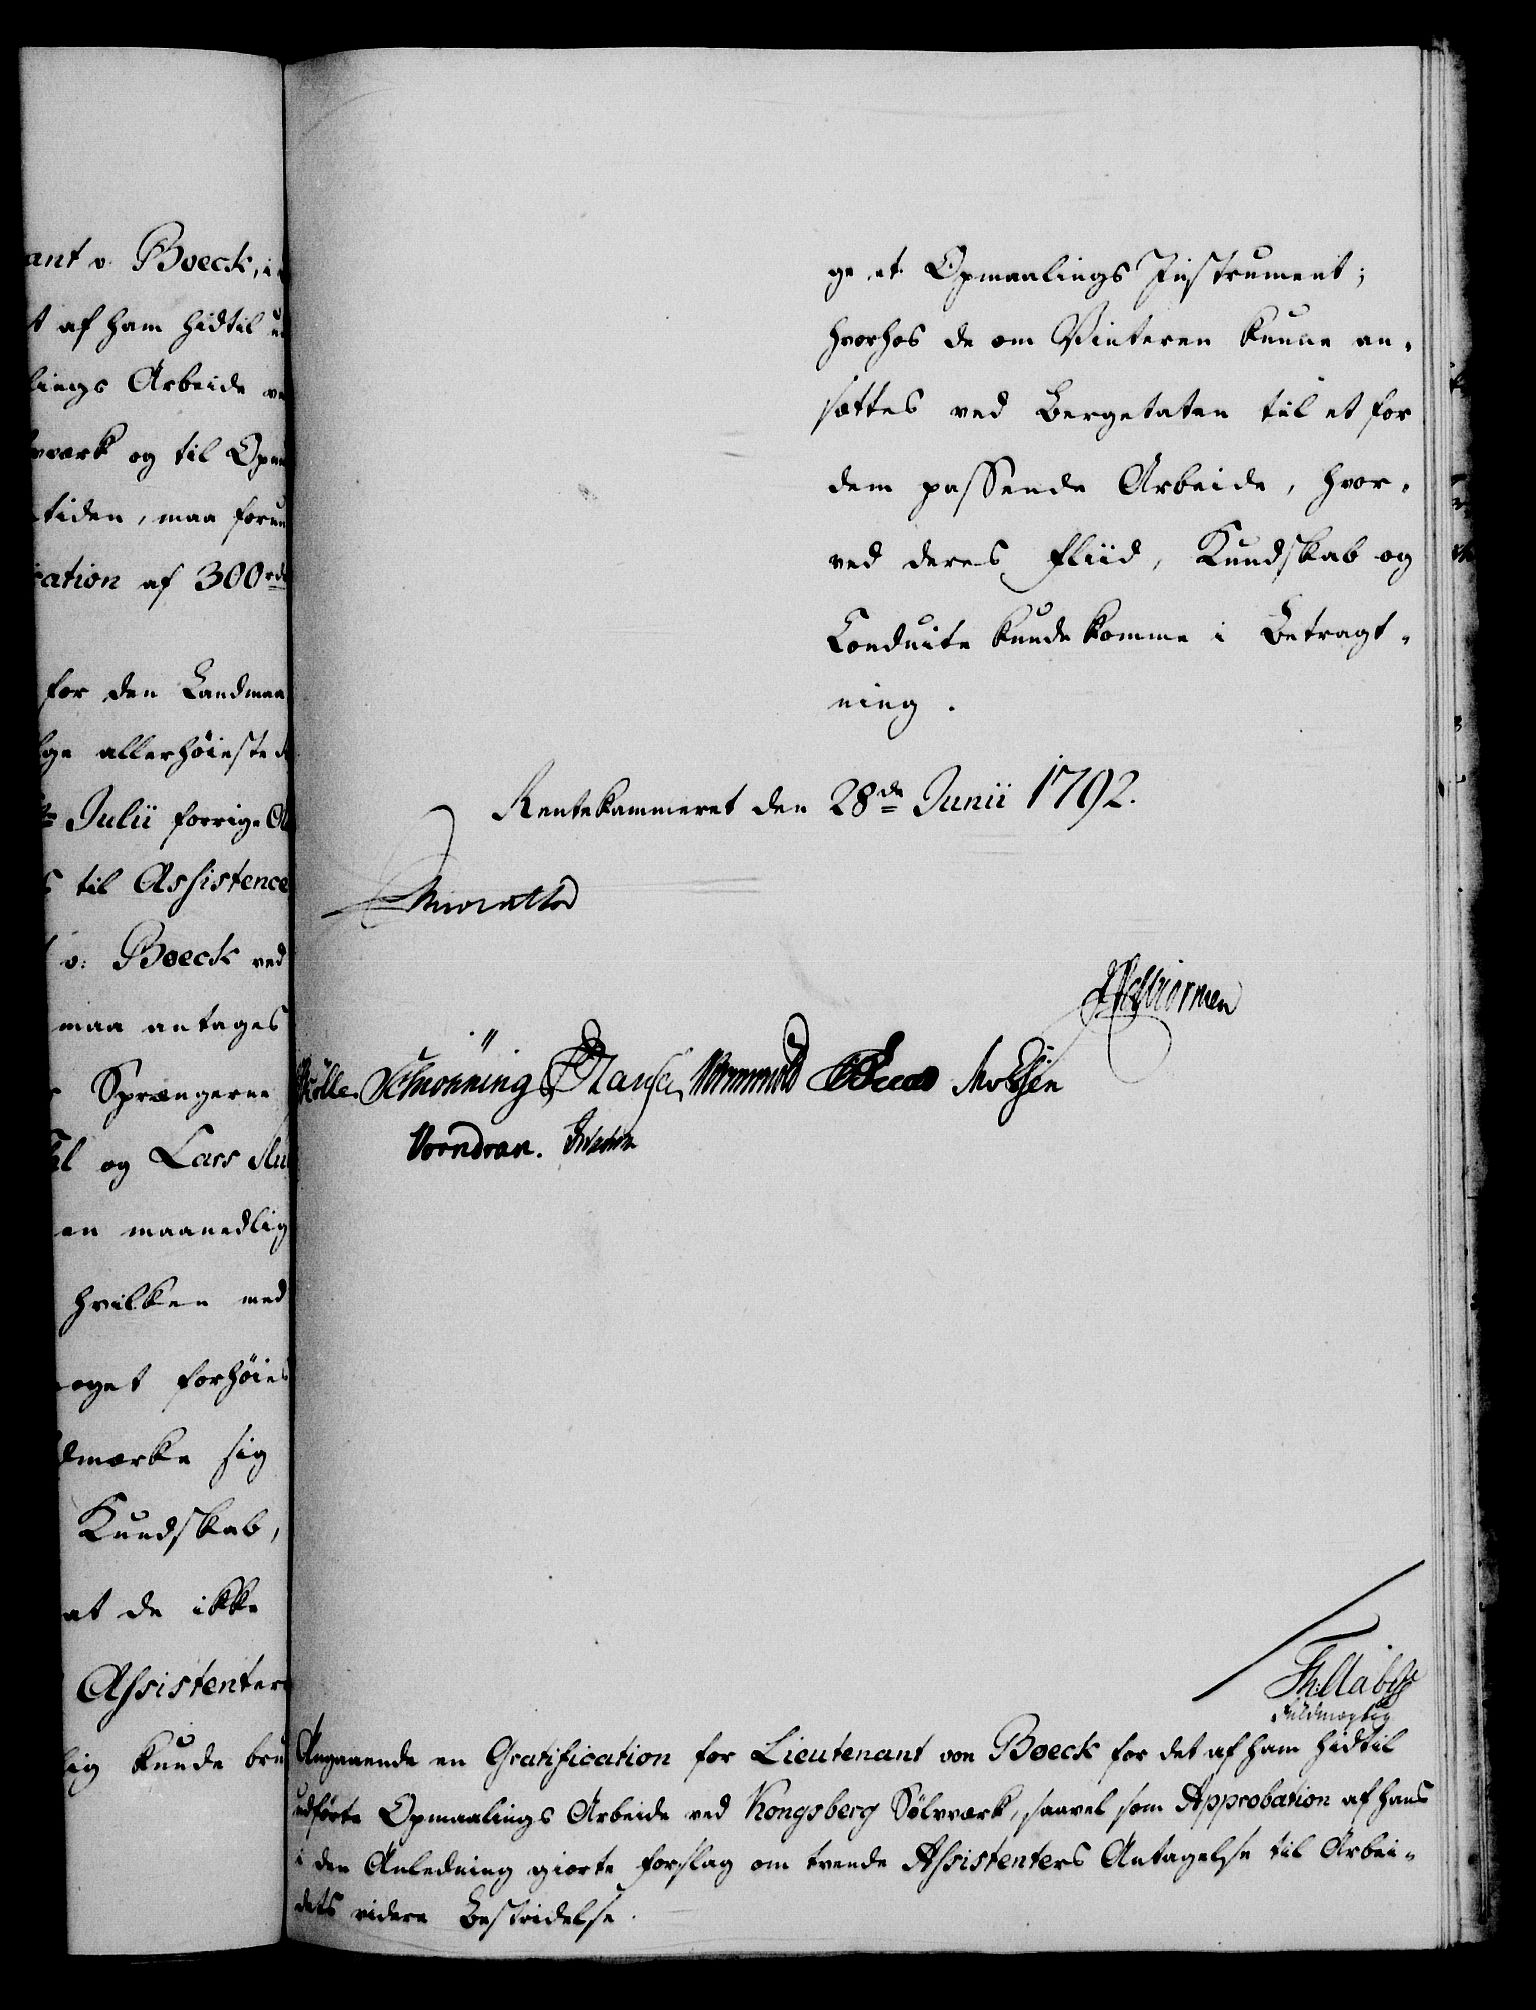 ant v. Boeck, i
t af ham hidtil u
lings Arbeide ve
værk og til Opm
tiden, maa forun
cation af 300 rd
for den Landmaa
lge allerhøieste
Julii forrige A
s til Assistence
v: Boeck ved
maa antages
Sprængerne
og Lars
en maanedlig
hvilken med
noget forhøies
dmærke sig
Kundskab,
at de ikke
Assistenter
lig kunde bru
ge et Opmaalings Instrument;
hvorhos de om Vinteren kunne an-
sættes ved Bergetaten til et for
dem passende Arbeide, hvor-
ved deres Fliid, Kundskab og
Conduite kunde komme i Betragt-
ning.
Rentekammeret den 28de Junii 1792.
Schiønning Hansen Wormskiold Molzen
Vorndran.
Fuldmægtig
Angaaende en Gratification for Lieutenant von Boeck for det af ham hidtil
udførte Opmaalings Arbeide ved Kongsberg Sølvværk, saavel som Approbation af hans
i den Anledning giorte Forslag om tvende Assistenters Antagelse til Arbei-
dets videre Bestridelse.